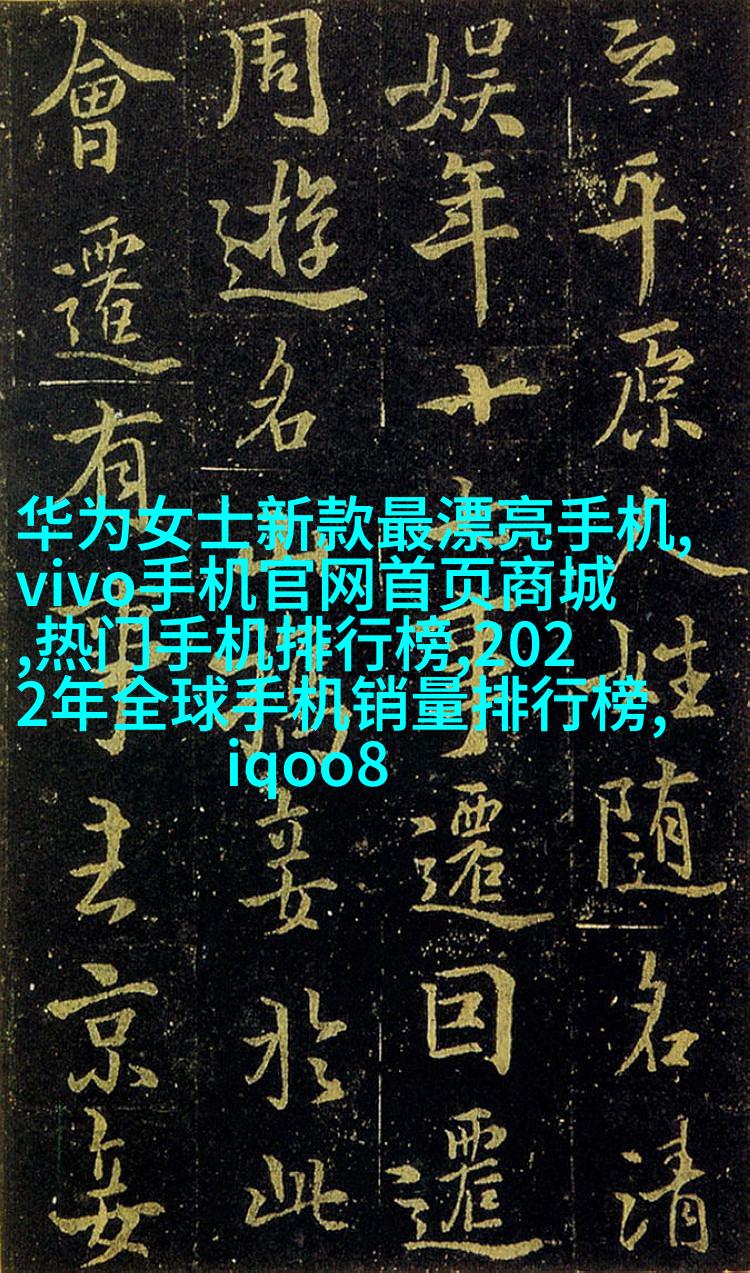 华为女士新款最漂亮手机,
vivo手机官网首页商城
,热门手机排行榜,202
2年全球手机销量排行榜,
iqoo8
之平原人姓随名清
娱年十事遷囙遷
周遊名妾於此
會遷有事去京妾